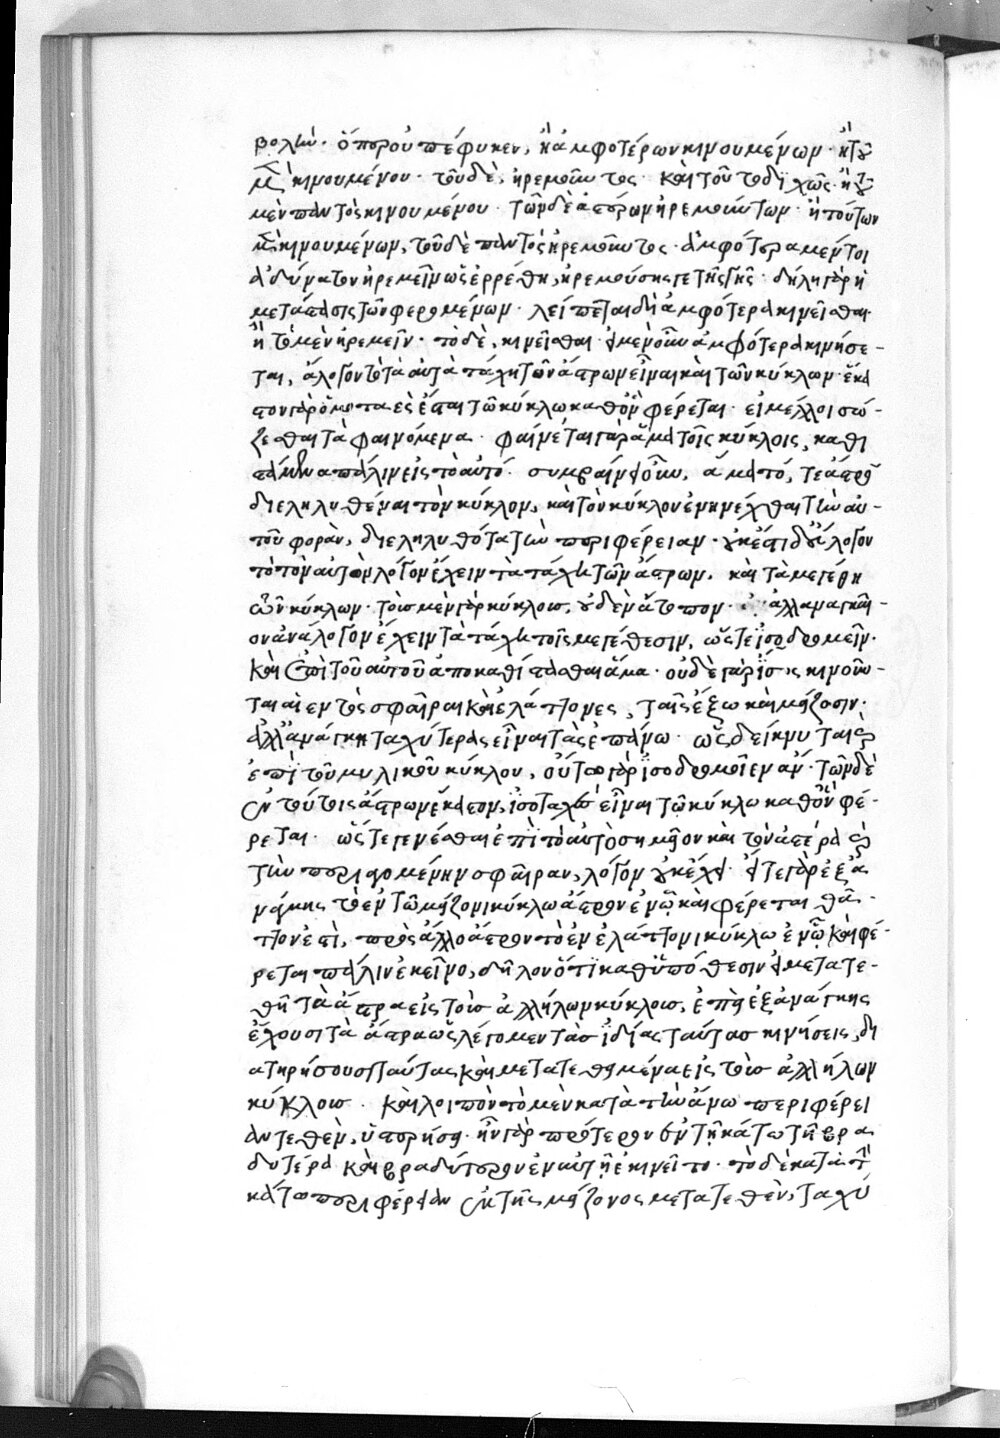 βολὴν. ὅπερ οὐ πέφυκεν, ἢ ἀμφοτέρων κινουμένων. ἢ τοῦ
μὲν κινουμένου. τοῦ δὲ, ἠρεμοῦντος. καὶ τοῦτο διχῶς. ἢ τοῦ
μὲν παντὸς κινουμένου. τῶν δὲ ἀστέρων ἠρεμούντων. ἢ τούτων
μὲν κινουμένων, τοῦ δὲ παντὸς ἠρεμοῦντος. ἀμφότερα μέντοι
ἀδύνατον ἠρεμεῖν ὡς ἐρρέθη, ἠρεμούσης γε τῆς γῆς. δήλη γὰρ ἡ
μετάστασις τῶν φερομένων. λείπεται δὴ ἀμφότερα κινεῖσθαι.
ἢ τὸ μὲν ἠρεμεῖν. τὸ δὲ, κινεῖσθαι. εἰ μὲν οὖν ἀμφότερα κινήσε-
ται, ἄλογον τὸ τὰ αὐτὰ τάχη τῶν ἄστρων εἶναι καὶ τῶν κύκλων. ἕκα
στον γὰρ ὁμοταχὲς ἔσται τῶ κύκλω καθ' ὃν φέρεται. εἰ μέλλοι σώ-
ζεσθαι τὰ φαινόμενα. φαίνεται γὰρ ἅμα τοῖς κύκλοις, καθι
στάμενα πάλιν εἰς τὸ αὐτό. συμβαίνει οὖν, ἅμα τό, τε ἄστρον
διεληλυθέναι τὸν κύκλον, καὶ τὸν κύκλον ἐνηνέχθαι τὴν αὑ-
τοῦ φορὰν, διεληλυθότα τὴν περιφέρειαν. οὐκ ἔστι δ' εὔλογον
τὸ τὸν αὐτὸν λόγον ἔχειν τὰ τάχη τῶν ἄστρων, καὶ τὰ μεγέθη
τῶν κύκλων. τοὺς μὲν γὰρ κύκλους, οὐδὲν ἄτοπον. ἀλλ' ἀναγκαῖ-
ον ἀνάλογον ἔχειν τὰ τάχη τοῖς μεγέθεσιν, ὥστε ἰσοδρομεῖν.
καὶ ἐπὶ τοῦ αὐτοῦ ἀποκαθίστασθαι ἅμα. οὐδὲ γὰρ ἴσως κινοῦν-
ται αἱ ἐντὸς σφαῖραι καὶ ἐλάττονες, ταῖς ἔξω καὶ μείζοσιν.
ἀλλ' ἀνάγκη ταχυτέρας εἶναι τὰς ἐπάνω. ὡς δείκνυται
ἐπὶ τοῦ μυλικοῦ κύκλου, οὕτω γὰρ ἰσοδρομοῖεν ἄν. τῶν δὲ
ἐν τούτοις ἄστρων ἕκαστον, ἰσοταχὲς εἶναι τῶ κύκλω καθ' ὃν φέ-
ρεται. ὥστε γενέσθαι ἐπὶ τὸ αὐτὸ σημεῖον καὶ τὸν ἀστέρα καὶ
τὴν περιαγομένην σφαῖραν, λόγον οὐκ ἔχει. εἴτε γὰρ ἐξ ἀ
νάγκης τὸ ἐν τῶ μείζονι κύκλω ἄστρον ἐν ὧ καὶ φέρεται θᾶτ-
τον ἐστὶ, πρὸς ἄλλο ἄστρον τὸ ἐν ἐλάττονι κύκλω ἐν ὧ καὶ φέ-
ρεται πάλιν ἐκεῖνο, δῆλον ὅτι καθ' ὑπόθεσιν εἰ μετατε-
θῆ τὰ ἄστρα εἰς τοὺς ἀλλήλων κύκλους, ἐπεὶ ἐξ ἀνάγκης
ἔχουσι τὰ ἄστρα ὡς λέγομεν τὰς ἰδίας ταύτας κινήσεις, δι
ατηρήσουσι ταύτας καὶ μετατεθειμένα εἰς τοὺς ἀλλήλων
κύκλους. καὶ λοιπὸν τὸ μὲν κατὰ τὴν ἄνω περιφέρει
αν τεθὲν, ὑστερήσει. ἦν γὰρ πρότερον ἐν τῆ κάτω τῆ βρα
δυτέρα καὶ βραδύτερον ἐν αὐτῆ ἐκινεῖτο. τὸ δὲ κατὰ τὴν
κάτω περιφέρειαν ἐκ τῆς μείζονος μετατεθὲν, ταχύ